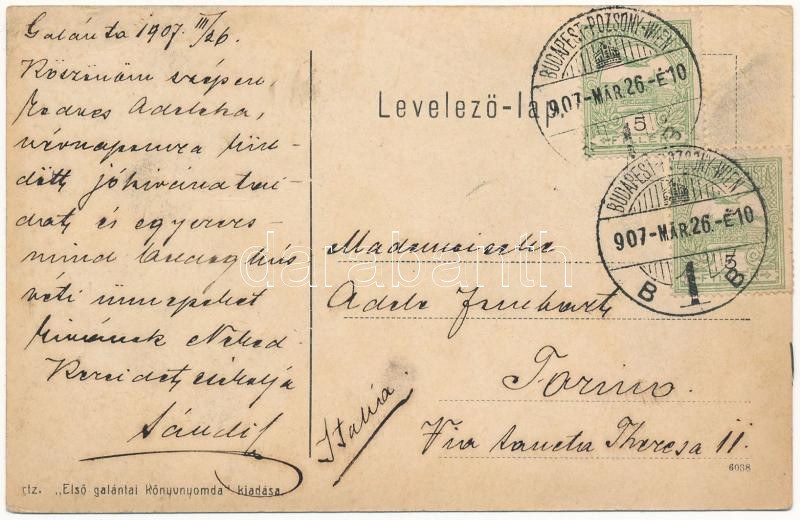 Galánta 1907 III/26.
Köszönöm szépen
kedves Adelcha,
névnapomra kül-
dött jókivánatai-
dat és egyszers-
mind boldog hús-
véti ünnepeket
kivánok Neked
Kezeidet csókolja
Sándi
Levelező-lap.
BUDAPEST-POZSONY-WIEN
907-MÁR.26.-É10
5
BUDAPEST-POZSONY-WIEN
907-MÁR.26.-É10
B 1 B
Mademoiselle
Adele
Torino.
Via Sancta Theresa 11.
Italia
6038
rtz. „Első galántai Könyvnyomda" kiadása
darabanth